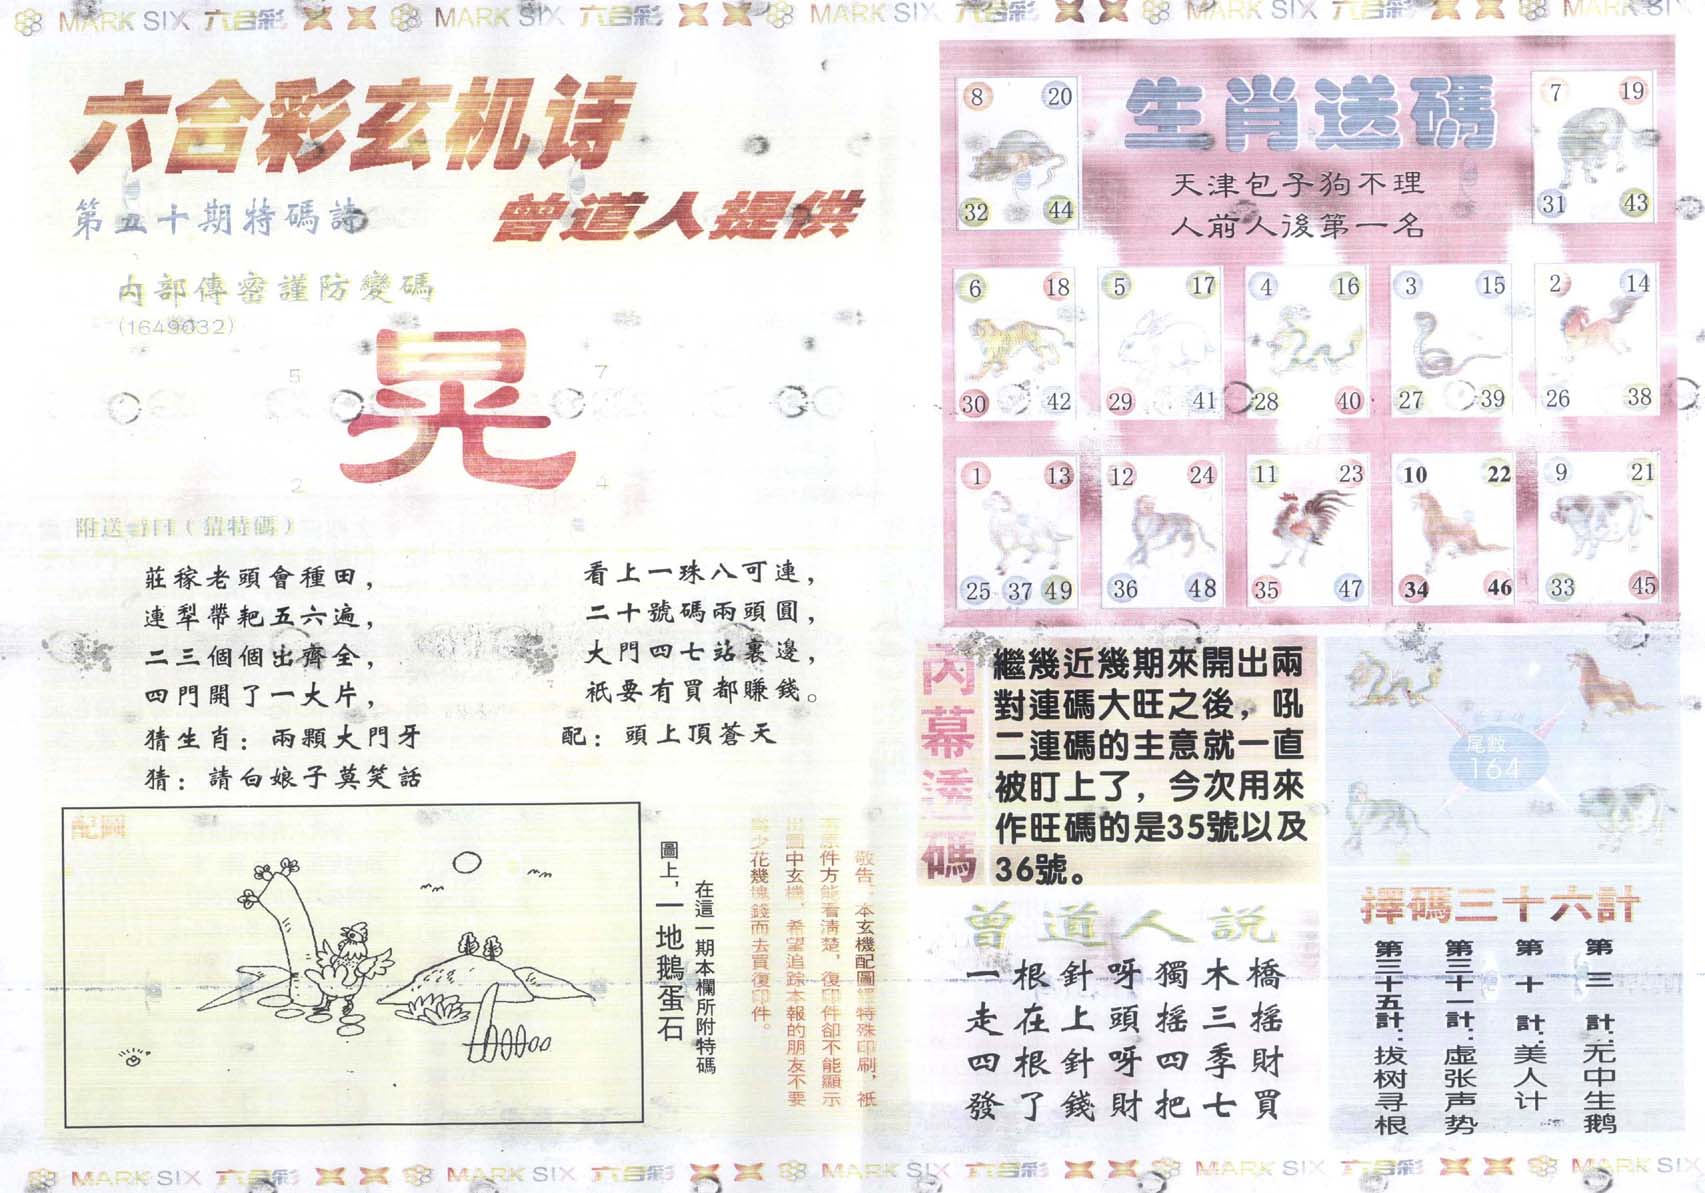 MARK SIX 六合彩 MARK SIX 六合彩 MARK SIX 六合彩 MARK SIX 六合彩 MARK SIX
六合彩玄机诗
第五十期特碼詩
曾道人提供
内部傳密謹防變碼
(1649032)
5 7
晃
2 4
附送
(猜特碼)
莊稼老頭會種田,
連犁帶耙五六遍,
二三個個出齊全,
四門開了一大片,
猜生肖: 兩顆大門牙
猜: 請白娘子莫笑話
看上一珠八可連,
二十號碼兩頭圓,
大門四七站裏邊,
祇要有買都賺錢。
配: 頭上頂蒼天
配圖
在這一期本欄所附特碼
圖上,一地鵝蛋石
敬告:本玄機配圖
特殊印刷,祇
原件方能看清楚,復印件卻不能顯示
出圖中玄機,希望追踪本報的朋友不要
少花幾塊錢而去買復印件。
生肖送碼
天津包子狗不理
人前人後第一名
8 20
32 44
7 19
31 43
6 18
30 42
5 17
29 41
4 16
28 40
3 15
27 39
2 14
26 38
1 13
25 37 49
12 24
36 48
11 23
35 47
10 22
34 46
9 21
33 45
内幕透碼
繼幾近幾期來開出兩
對連碼大旺之後，吼
二連碼的主意就一直
被盯上了，今次用來
作旺碼的是35號以及
36號。
尾數
164
曾道人説
一根針呀獨木橋
走在上頭摇三摇
四根針呀四季財
發了錢財把七買
擇碼三十六計
第三計:无中生鹅
第十計:美人计
第三十一計:虚张声势
第三十五計:拔树寻根
MARK SIX 六合彩 MARK SIX 六合彩 MARK SIX 六合彩 MARK SIX 六合彩 MARK SIX